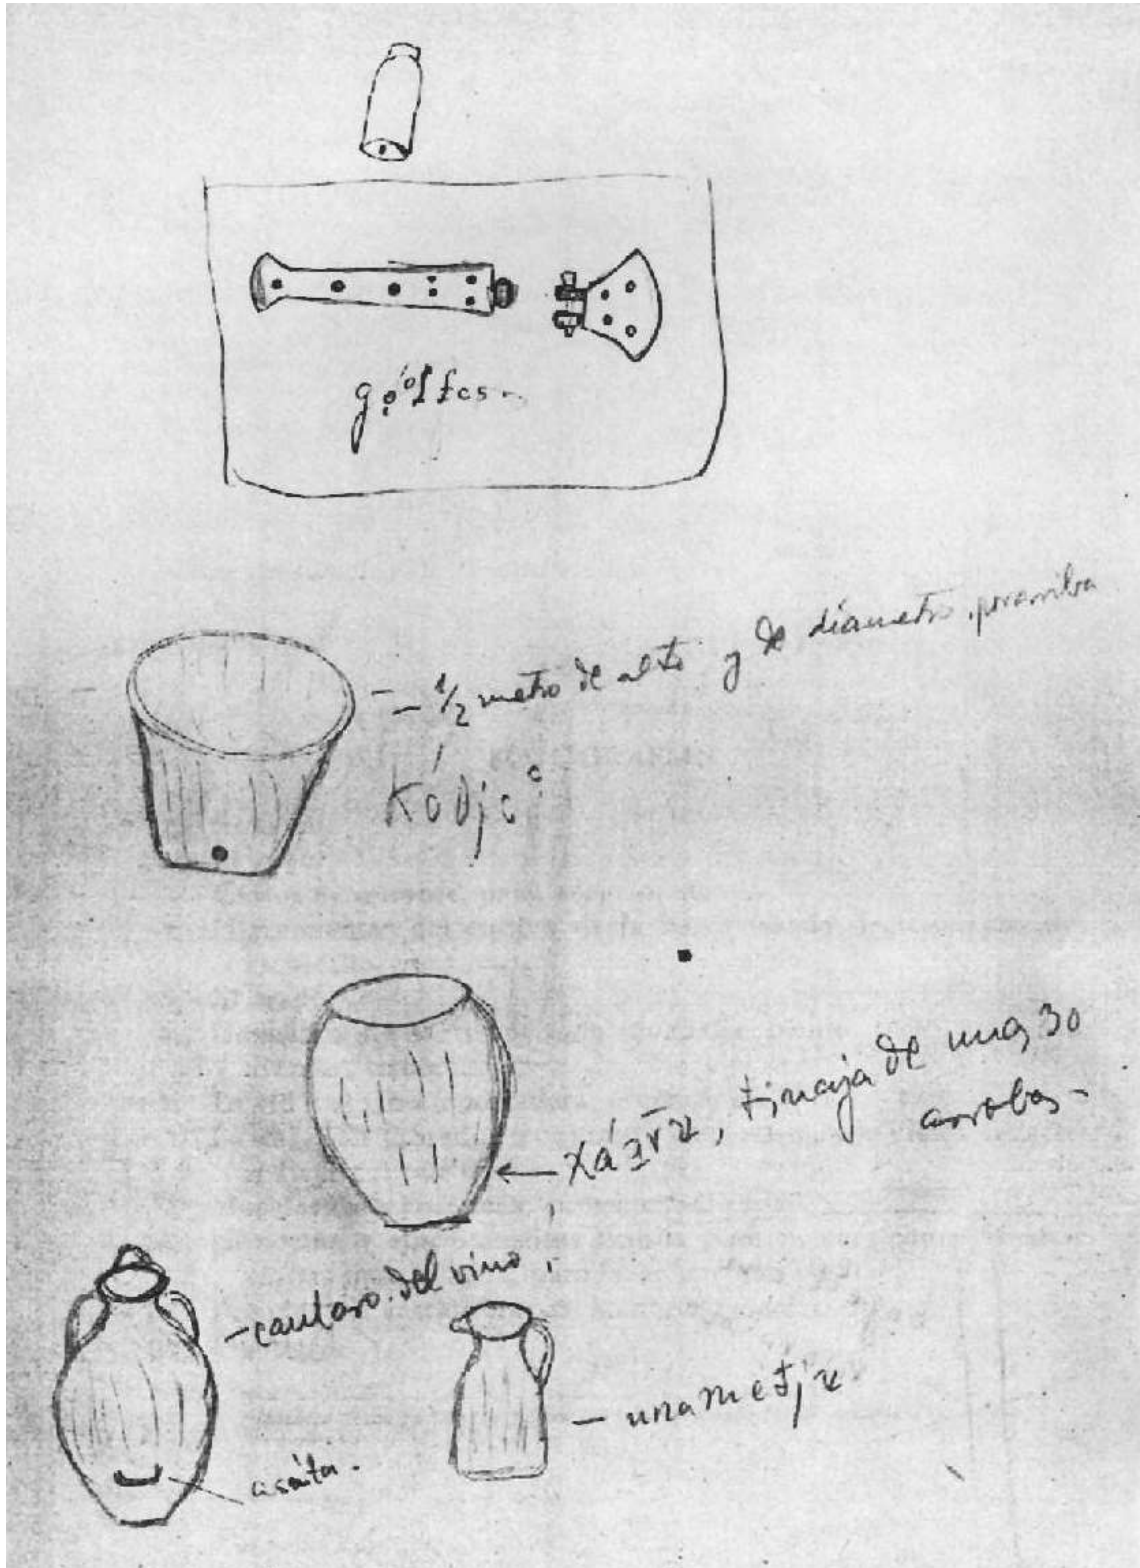 gó̩lfes.
— ½ metro de alto y de diámetro por arriba
tinaja de unas 30
arrobas —
— cantaro del vino
— una metjɐ
asita.